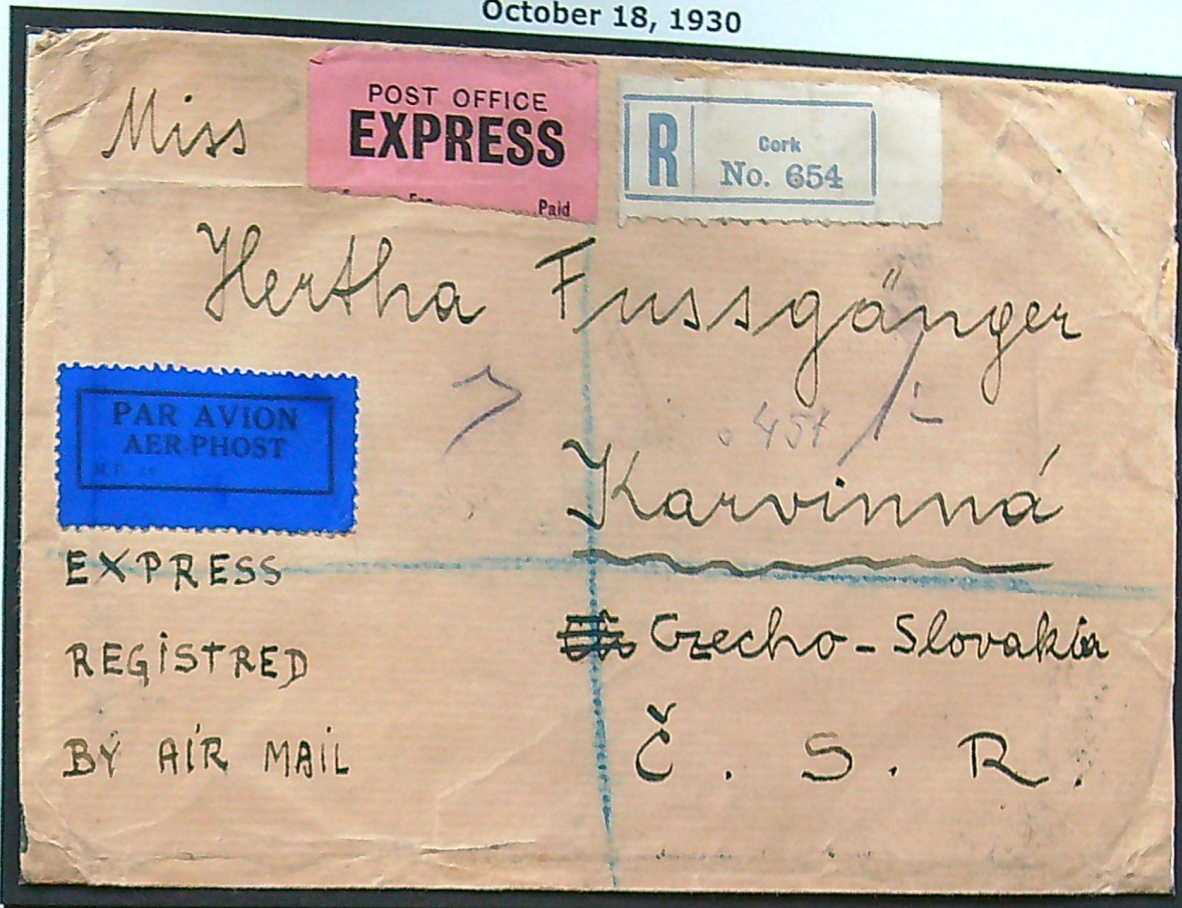 October 18, 1930
Miss
POST OFFICE
EXPRESS
Paid
R
Cork
No. 654
Hertha Fussgänger
PAR AVION
AER PHOST
Karvinná
EXPRESS
REGISTRED
BY AIR MAIL
Czecho-Slovakia
Č. S. R.